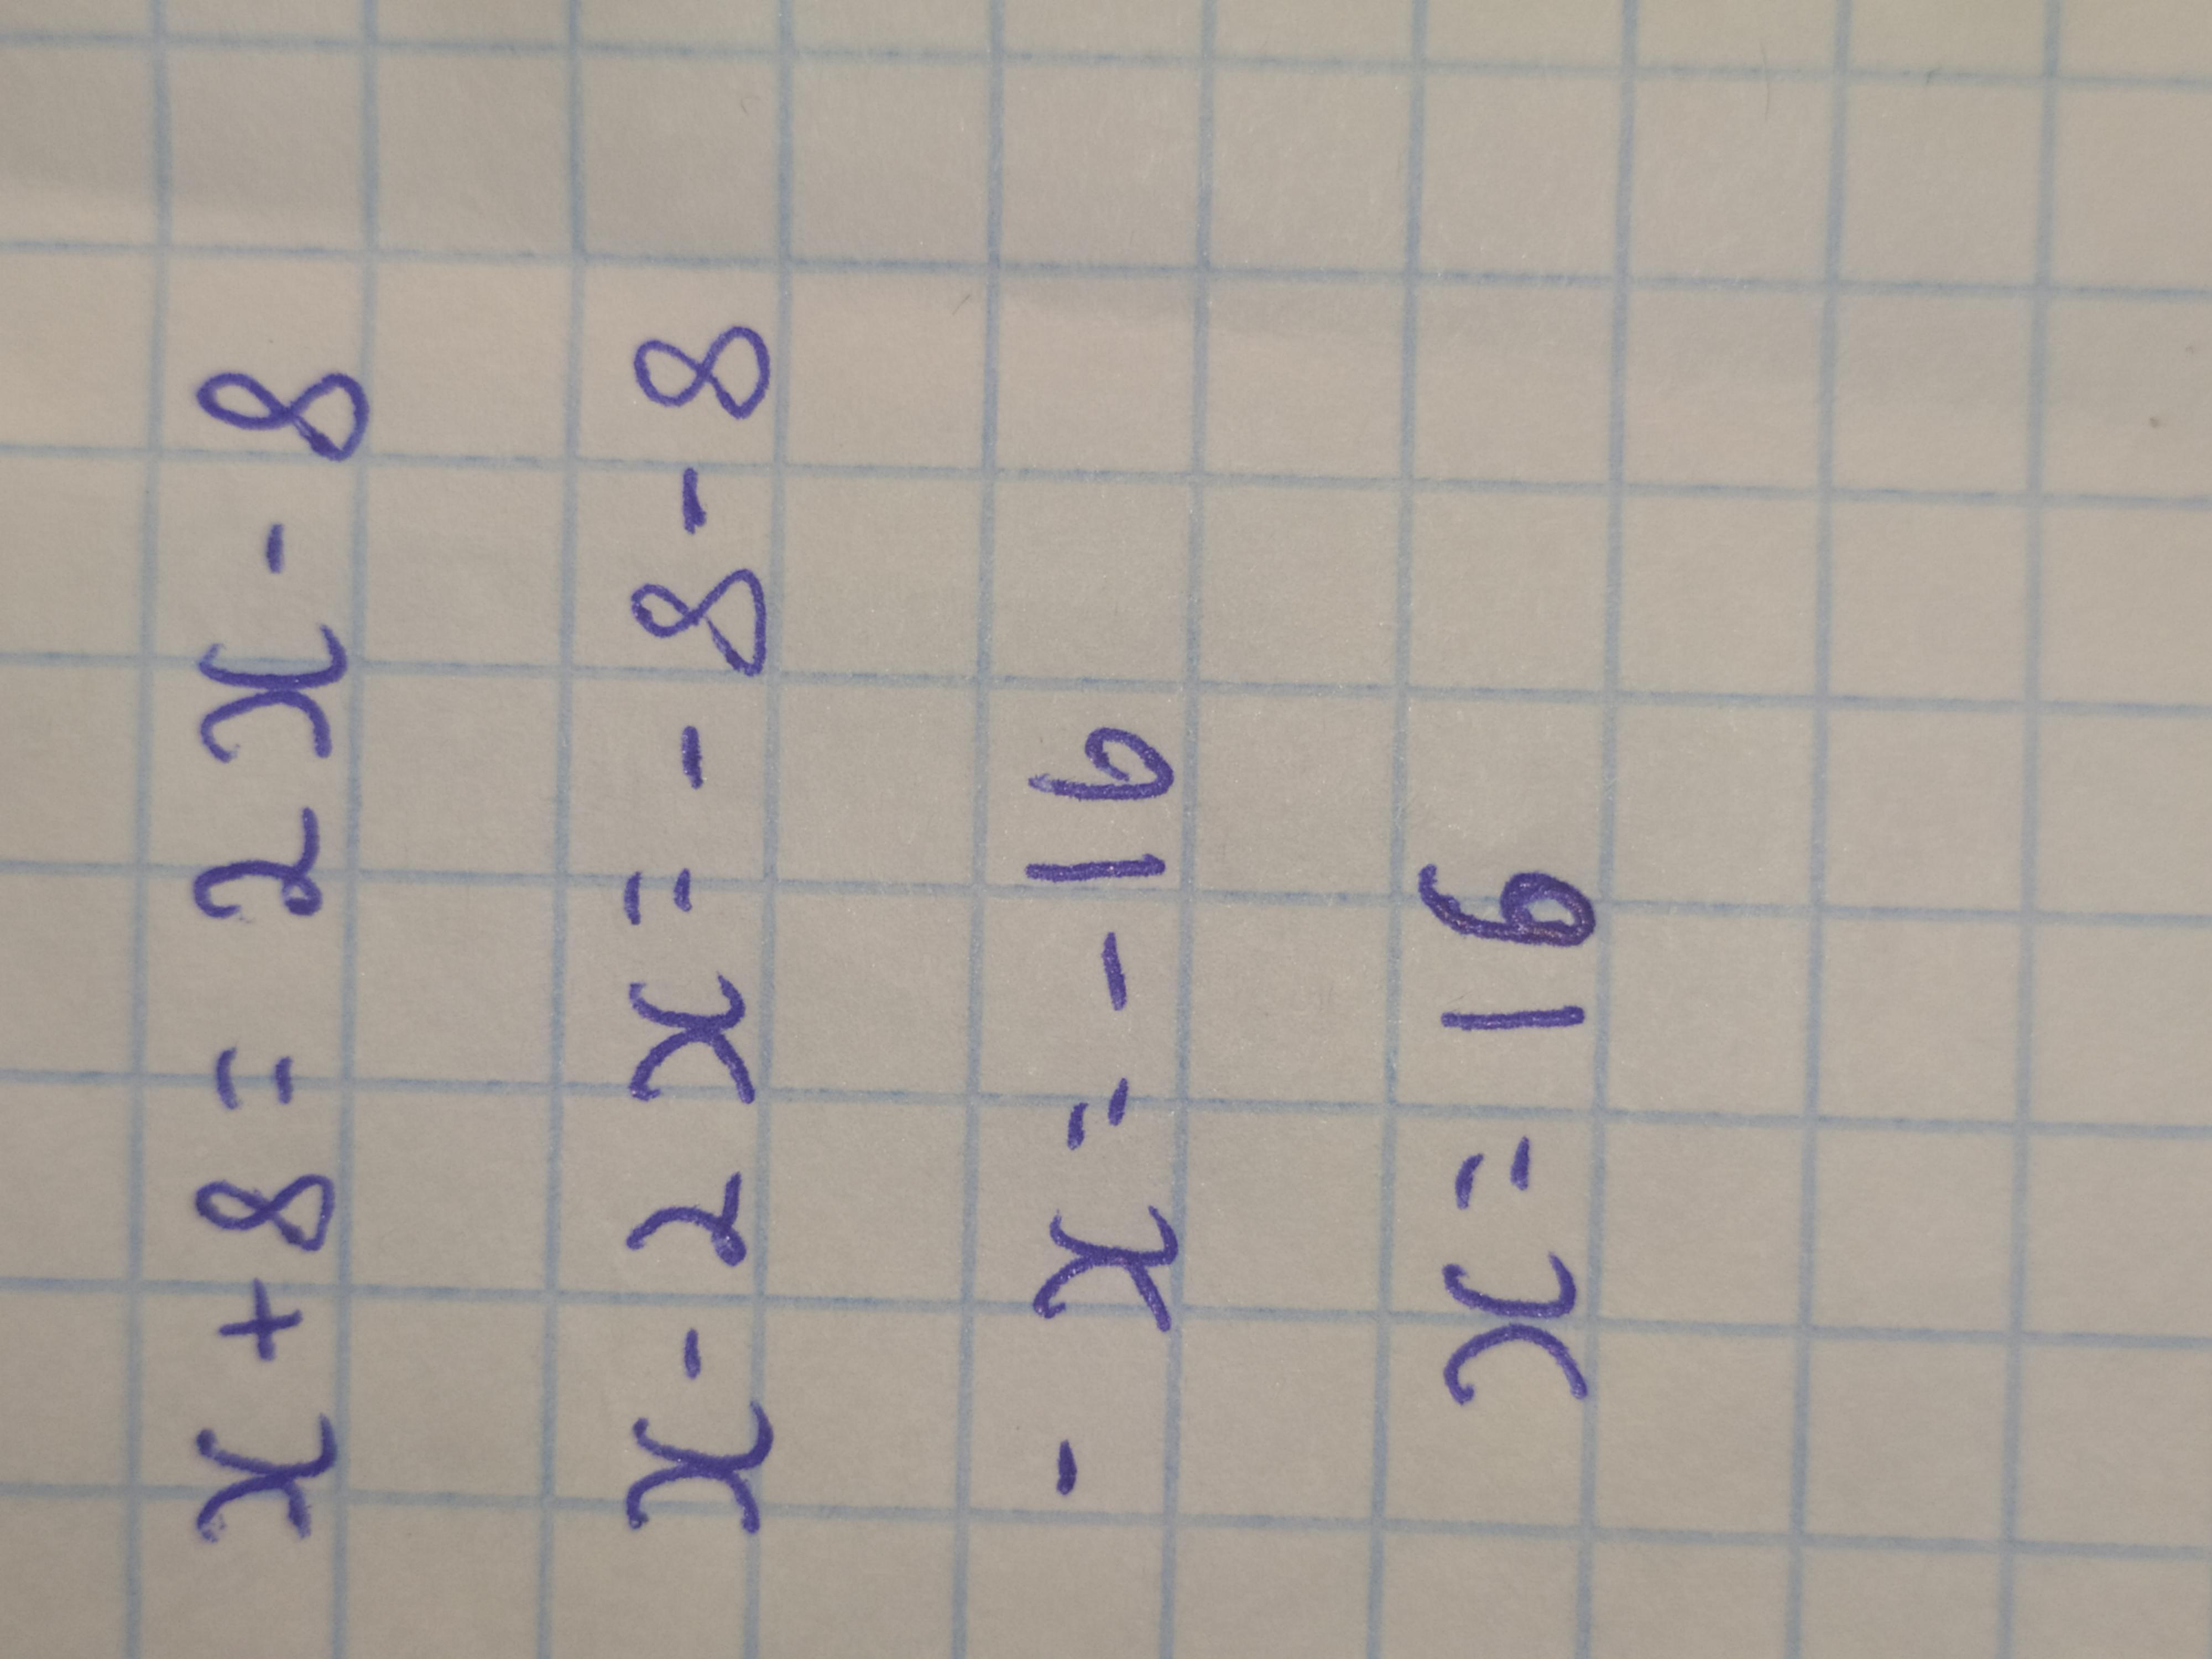 x + 8 = 2x - 8
x - 2x = - 8 - 8
- x = - 16
x = 16